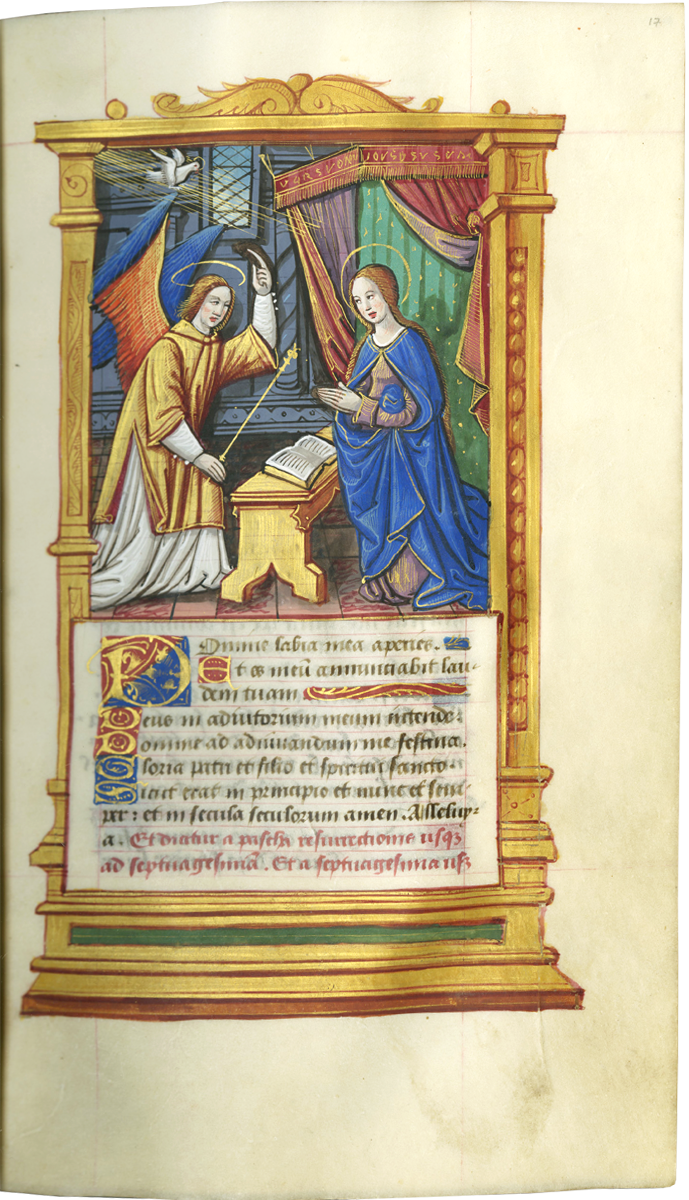 17
Domine labia mea aperies.
Et os meū annunciabit lau-
dem tuam
Deus in adiutorium meum intende.
Domine ad adiuuandum me festina.
Gloria patri et filio et spiritui sancto
Sicut erat in principio et nunc et sem-
per: et in secula seculorum amen. Alleluy-
a. Et dicitur a pascha resurrectionis usqꝫ
ad septuagesimā. Et a septuagesima usqꝫ